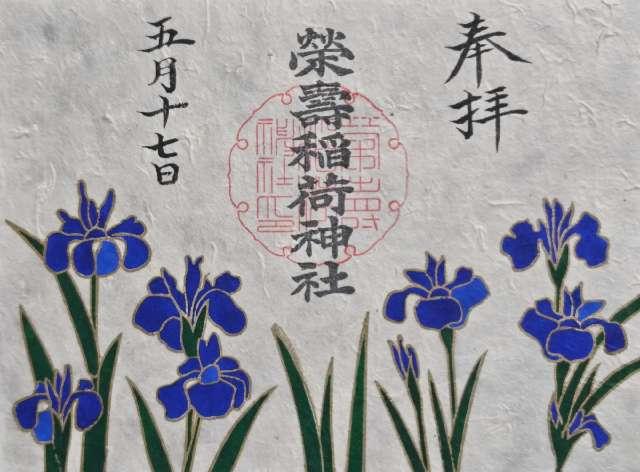 奉拝
榮壽稲荷神社
五月十七日